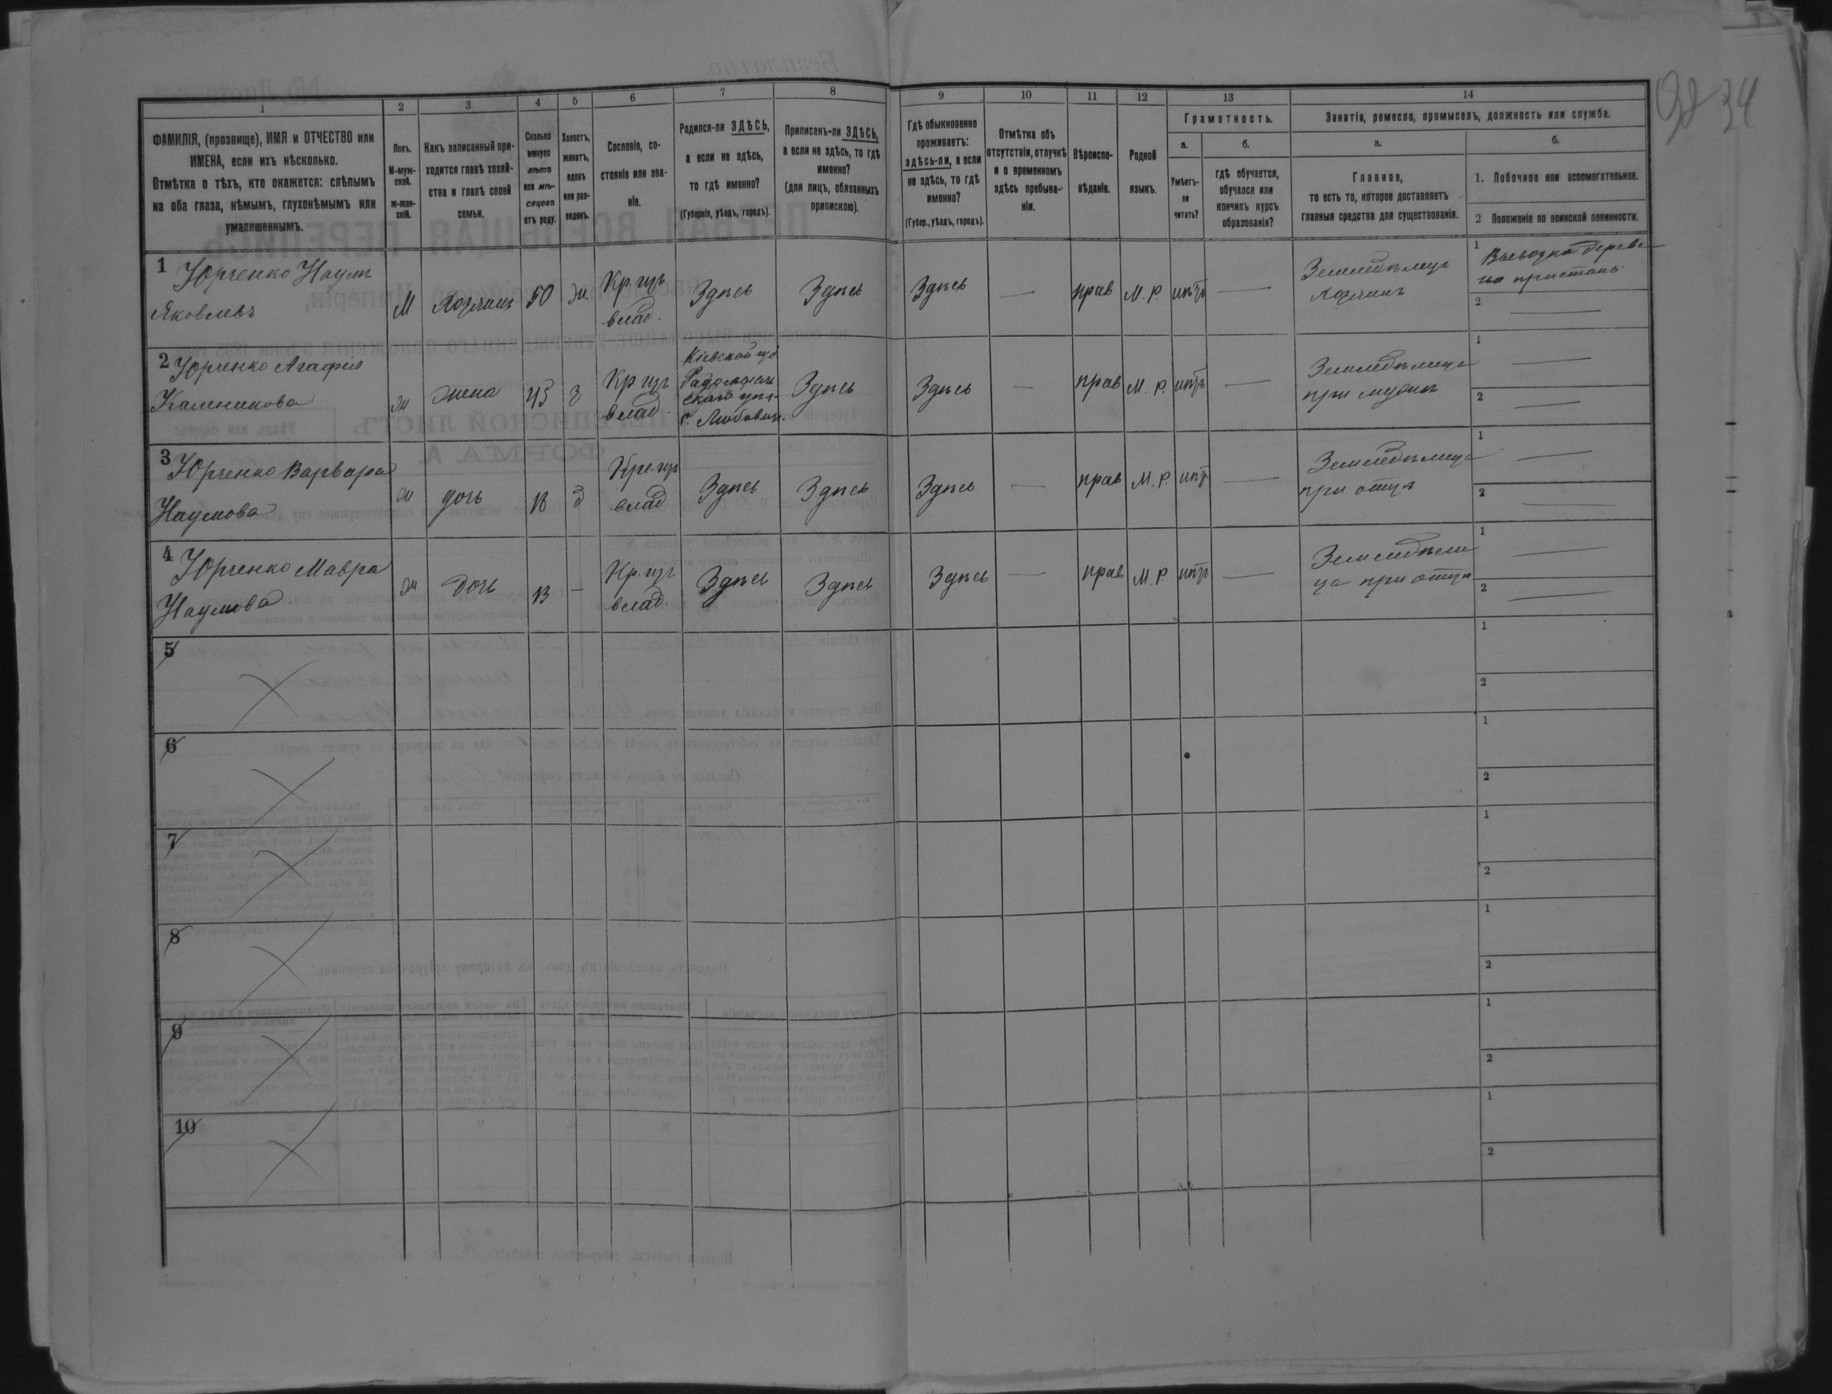 98 34
1 2 3 4 5 6 7 8 9 10 11 12 13 14
ФАМИЛІЯ, (прозвище), ИМЯ и ОТЧЕСТВО или
ИМЕНА, если ихъ нѣсколько.
Отмѣтка о тѣхъ, кто окажется: слѣпымъ
на оба глаза, нѣмымъ, глухонѣмымъ или
умалишеннымъ.
Полъ.
М-муж-
ской.
ж-жен-
скій.
Какъ записанный при-
ходится главѣ хозяй-
ства и главѣ своей
семьи.
Сколько
минуло
лѣтъ
или мѣ-
сяцевъ
отъ роду.
Холостъ,
женатъ,
вдовъ
или раз-
веденъ.
Сословіе, со-
стояніе или зва-
ніе.
Родился-ли ЗДѢСЬ,
а если не здѣсь,
то гдѣ именно?
(Губернія, уѣздъ, городъ).
Приписанъ-ли ЗДѢСЬ,
а если не здѣсь, то гдѣ
именно?
(для лицъ, обязанныхъ
припискою).
Гдѣ обыкновенно
проживаетъ:
здѣсь-ли, а если
не здѣсь, то гдѣ
именно?
(Губер., уѣздъ, городъ).
Отмѣтка объ
отсутствіи, отлучкѣ
и о временномъ
здѣсь пребыва-
ніи.
Вѣроиспо-
вѣданіе.
Родной
языкъ.
Грамотность.
а.
Умѣетъ-
ли
читать?
б.
гдѣ обучается,
обучался или
кончилъ курсъ
образованія?
Занятіе, ремесло, промыселъ, должность или служба.
а.
Главное,
то есть то, которое доставляетъ
главныя средства для существованія.
б.
1. Побочное или вспомогательное.
2 Положеніе по воинской повинности.
1 Юрченко Наумъ
Яковлевъ
М
хозяинъ
50
ж.
Кр. изъ
влад.
Здѣсь
Здѣсь
Здѣсь
—
прав
М. Р.
нѣтъ
—
Земледѣлецъ
хозяинъ
1 Вывозка дерева
на пристань
2 —
2 Юрченко Агафія
Калиникова
ж
жена
45
з
Кр. изъ
влад.
Кіевской губ
Радомысль
скаго уѣз.
с. Любович.
Здѣсь
Здѣсь
—
прав
М. Р.
нѣтъ
—
Земледѣлица
при мужѣ
1 —
2 —
3 Юрченко Варвара
Наумова
ж
дочь
18
д
Кр. изъ
влад
Здѣсь
Здѣсь
Здѣсь
—
прав
М. Р.
нѣтъ
—
Земледѣлица
при отцѣ
1 —
2 —
4 Юрченко Мавра
Наумова
ж
дочь
13
—
Кр. изъ
влад.
Здѣсь
Здѣсь
Здѣсь
—
прав
М. Р.
нѣтъ
—
Земледѣли
ца при отцѣ
1 —
2 —
5
1
2
6
1
2
7
1
2
8
1
2
9
1
2
10
1
2